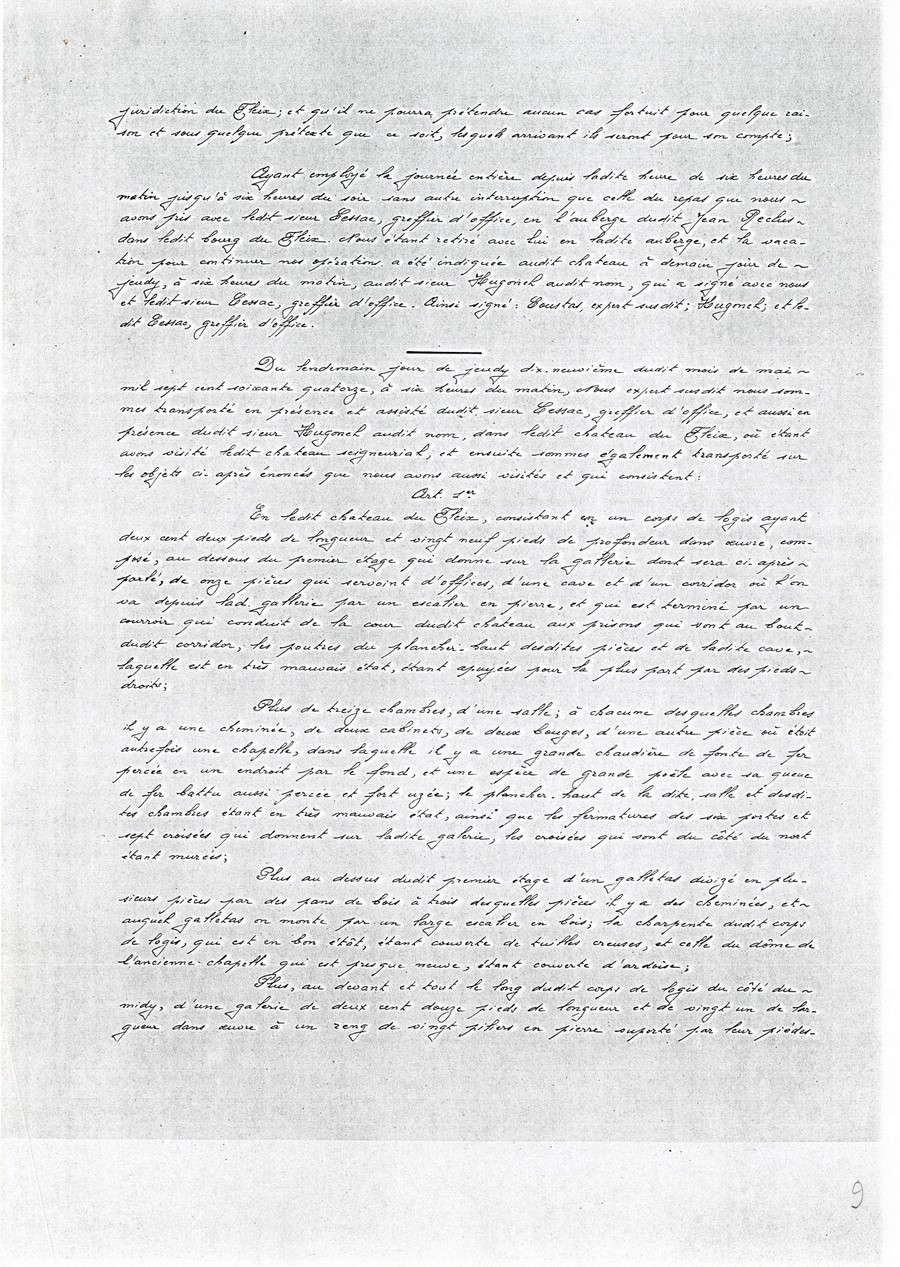 juridiction du Fleix; et qu'il ne pourra prétendre aucun cas fortuit pour quelque rai-
son et sous quelque prétexte que ce soit, lesquels arrivant ils seront pour son compte;
Ayant employé la journée entière depuis ladite heure de six heures du
matin jusqu'à six heures du soir sans autre interruption que celle du repas que nous ~
avons pris avec ledit sieur Cessac, greffier d'office, en l'auberge dudit Jean Reclus ~
dans ledit bourg du Fleix. Nous étant retiré avec lui en ladite auberge, et la vaca-
tion pour continuer nos opérations a été indiquée audit chateau à demain jour de ~
jeudy, à six heures du matin, audit sieur Hugonel audit nom, qui a signé avec nous
et ledit sieur Cessac, greffier d'office. Ainsi signé: Coustas, expert susdit; Hugonel; et le-
dit Cessac, greffier d'office.
Du lendemain jour de jeudy dix-neuvième dudit mois de mai ~
mil sept cent soixante quatorze, à six heures du matin, Nous expert susdit nous som-
mes transporté en présence et assisté dudit sieur Cessac, greffier d'office, et aussi en
présence dudit sieur Hugonel audit nom, dans ledit chateau du Fleix, où étant
avons visité ledit chateau seigneurial, et ensuite sommes également transporté sur
les objets ci-après énoncés que nous avons aussi visités et qui consistent:
Art. 1er
En ledit chateau du Fleix, consistant en un corps de logis ayant
deux cent deux pieds de longueur et vingt neuf pieds de profondeur dans œuvre, com-
posé, au dessous du premier étage qui donne sur la gallerie dont sera ci-après ~
parlé, de onze pièces qui servoint d'offices, d'une cave et d'un corridor où l'on
va depuis lad. gallerie par un escalier en pierre, et qui est terminé par un
courroir qui conduit de la cour dudit chateau aux prisons qui sont au bout ~
dudit corridor, les poutres du plancher-haut desdites pièces et de ladite cave, ~
laquelle est en très mauvais état, étant apuyées pour la plus part par des pieds ~
droits;
Plus de treize chambres, d'une salle; à chacune desquelles chambres
il y a une cheminée, de deux cabinets, de deux bouges, d'une autre pièce où étoit
autrefois une chapelle, dans laquelle il y a une grande chaudière de fonte de fer
percée en un endroit par le fond, et une espèce de grande poële avec sa queue
de fer battu aussi percée et fort uzée; le plancher-haut de la dite salle et desdi-
tes chambres étant en très mauvais état, ainsi que les fermatures des six portes et
sept croisées qui donnent sur ladite galerie, les croisées qui sont du côté du nort
étant murées;
Plus au dessus dudit premier étage d'un galletas divizé en plu-
sieurs pièces par des pans de bois à trois desquelles pièces il y a des cheminées, et ~
auquel galletas on monte par un large escalier en bois; la charpente dudit corps
de logis, qui est en bon étât, étant couverte de tuilles creuses, et celle du dôme de
l'ancienne-chapelle qui est presque neuve, étant couverte d'ardoise;
Plus, au devant et tout le long dudit corps de logis du côté du ~
midy, d'une galerie de deux cent douze pieds de longueur et de vingt un de lar-
gueur dans œuvre à un reng de vingt piliers en pierre suporté par leur piédes-
9